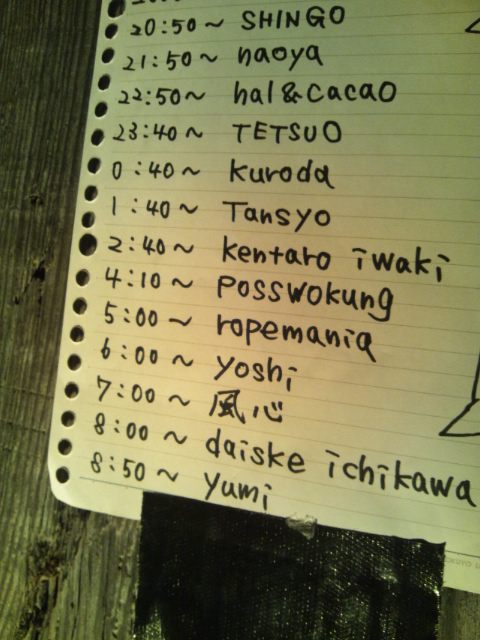 20:50~ SHINGO
21:50~ naoya
22:50~ hal&cacao
23:40~ TETSUO
0:40~ kuroda
1:40~ Tansyo
2:40~ kentaro iwaki
4:10~ POSSWOKUNg
5:00~ ropemania
6:00~ yoshi
7:00~ 風心
8:00~ daiske ichikawa
8:50~ yumi